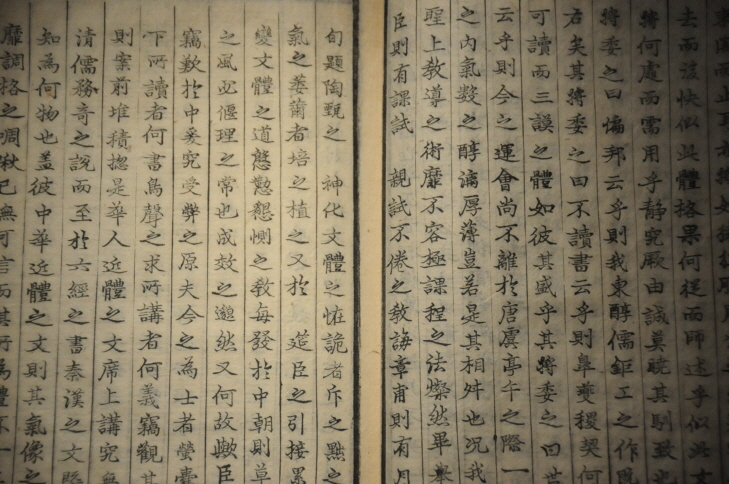 去而該快似此體格果何從而師述乎似此
將何處而需用乎靜究厥由誠莫曉其馴致
將委之曰偏邦云乎則我東醇儒鉅工之作旣
右矣其將委之曰不讀書云乎則皐夔稷契何
可讀而三謨之體如彼其盛乎其將委之曰
云乎則今之運會尚不離於唐虞亭午之際一
之內氣數之醇漓厚薄豈若是其相舛也况我
聖上敎導之術靡不容極課程之法燦然畢擧
臣則有課試 親試不倦之敎誨章甫則有月
旬題陶甄之 神化文體之恠詭者斥之黜之
氣之萎薾者培之植之又於 筵臣之引接
變文體之道慇懃懇惻之敎每發於中朝則草
之風必偃理之常也成效之邈然又何故歟臣
竊歎於中爰究受弊之原夫今之為士者螢囊
下所讀者何書鳥聲之求所講者何義竊觀其
則案前堆積揔是華人近體之文席上講究無
清儒務奇之說而至於六經之書秦漢之文
知為何物也盖彼中華近體之文則其氣像之
靡調格之凋湫已無可言而其所為體